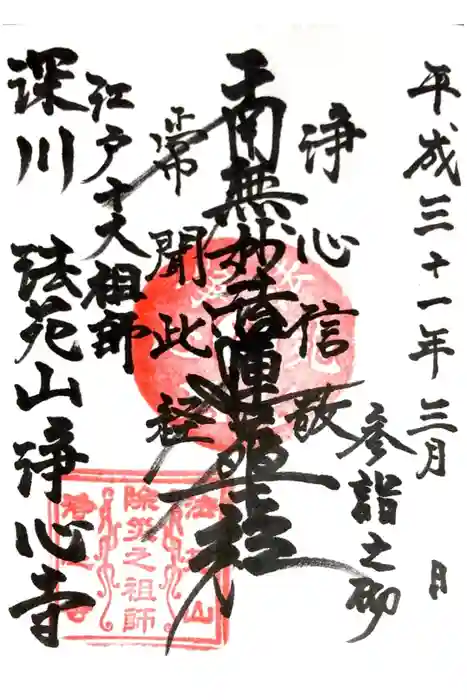 平成三十一年三月　日
参詣之砌
浄心信敬
南無妙法蓮華経
常聞此経
江戸十大祖師
深川 法苑山浄心寺
法苑山
除災之祖師
浄心寺